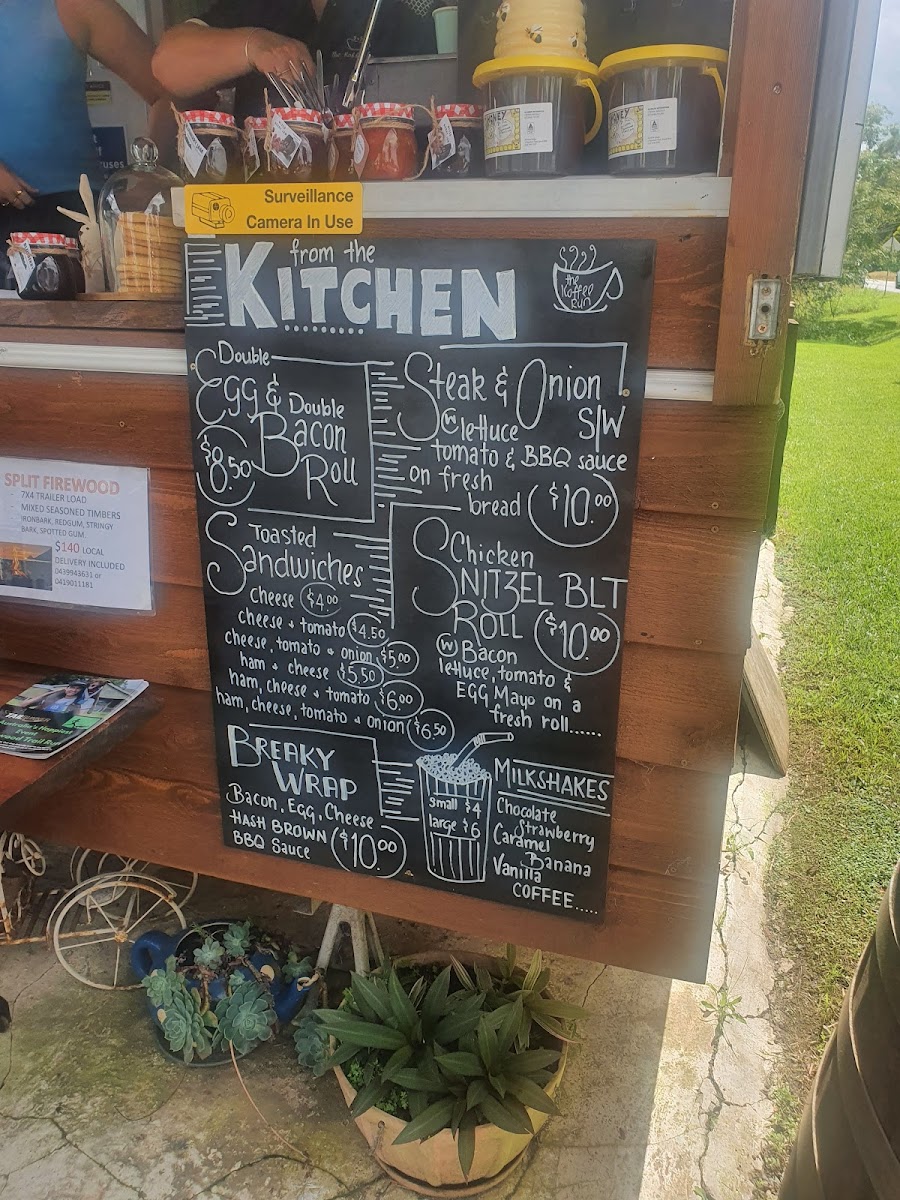 HONEY
HONEY
Surveillance
Camera In Use
from the
KITCHEN
the
Koffee
Run
Double
Egg &
Double
Bacon
Roll
$8.50
Steak & Onion
S/W
W lettuce
tomato & BBQ sauce
on fresh
bread $10.00
Toasted
Sandwiches
Cheese $4.00
cheese + tomato $4.50
cheese, tomato + onion $5.00
ham + cheese $5.50
ham, cheese + tomato $6.00
ham, cheese, tomato + onion $6.50
Chicken
SNITZEL BLT
ROLL $10.00
W Bacon
lettuce, tomato &
EGG Mayo on a
fresh roll......
BREAKY
WRAP
Bacon, Egg, Cheese
HASH BROWN
BBQ Sauce $10.00
small $4
large $6
MILKSHAKES
Chocolate
Strawberry
Caramel
Banana
Vanilla
COFFEE.....
SPLIT FIREWOOD
- 7X4 TRAILER LOAD
- MIXED SEASONED TIMBERS
IRONBARK, REDGUM, STRINGY
BARK, SPOTTED GUM.
$140 LOCAL
DELIVERY INCLUDED
0439943631 or
0419011181